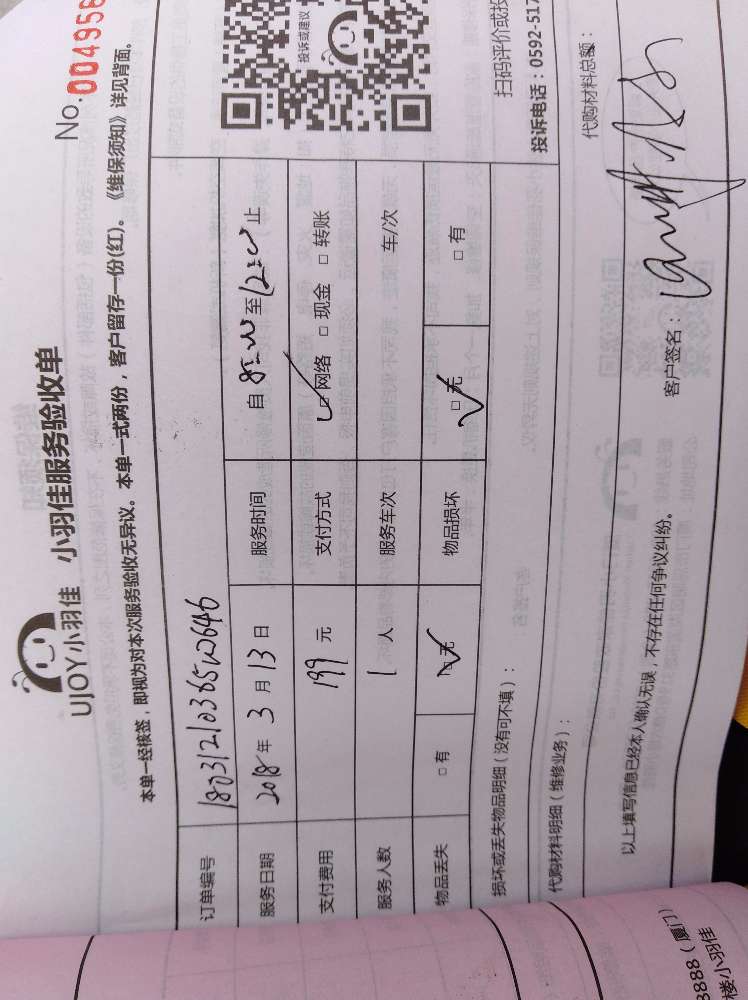 UJOY小羽佳 小羽佳服务验收单
No.004956
本单一经核签，即视为对本次服务验收无异议。本单一式两份，客户留存一份(红)。《维保须知》详见背面。
订单编号
服务日期 2018年 3 月 13 日 服务时间 自 8:00 至 12:00 止
支付费用 199 元 支付方式 □ 网络 □ 现金 □ 转账
服务人数 1 人 服务车次 车/次
物品丢失 □ 有 □ 无 物品损坏 □ 无 □ 有
投诉或建议
扫码评价或投
投诉电话：0592-517
损坏或丢失物品明细（没有可不填）：
代购材料明细（维修业务）：
代购材料总额：
以上填写信息已经本人确认无误，不存在任何争议纠纷。
客户签名：
3888（厦门）
楼小羽佳